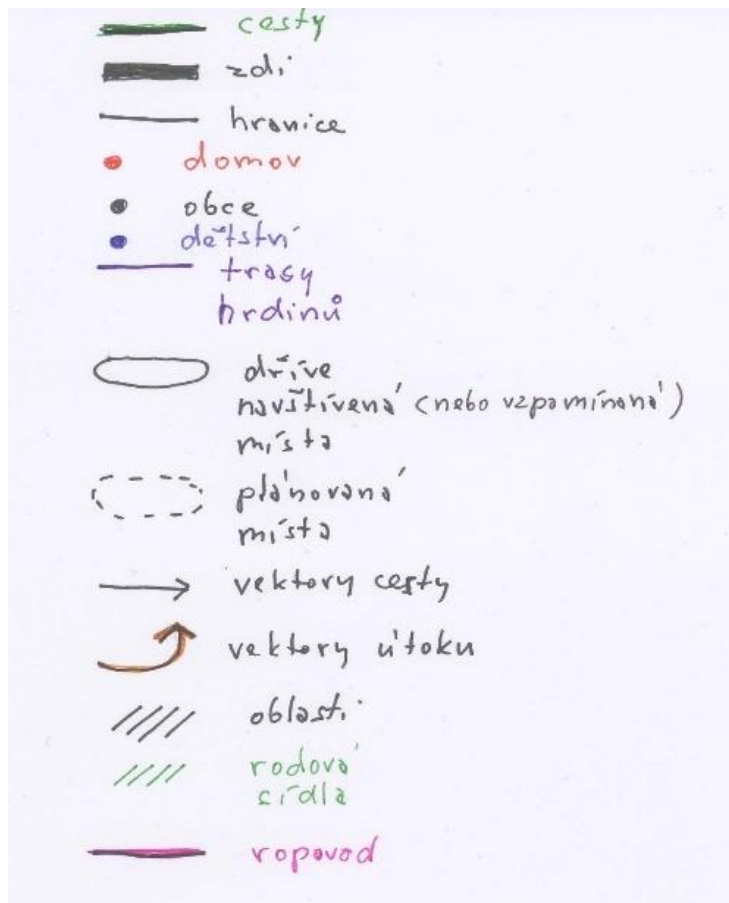 cesty
zdi
hranice
domov
obce
dětství
trasy
hrdinů
dříve
navštívená (nebo vzpomínaná)
místa
plánovaná
místa
vektory cesty
vektory útoku
oblasti
rodová
sídla
ropovod